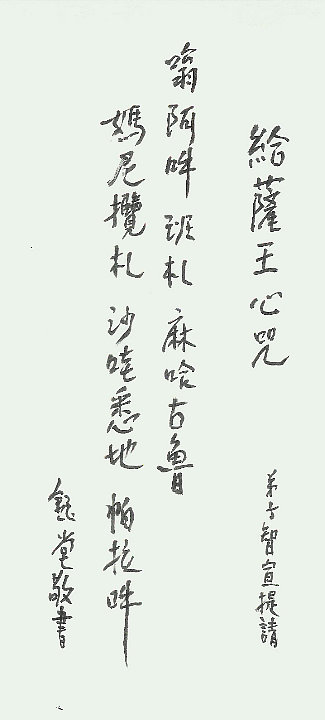 給薩王心咒
弟子智宣提請
嗡阿吽 班札 麻哈古魯
媽尼攬札 沙哇悉地 帕拉吽
鈺堂敬書